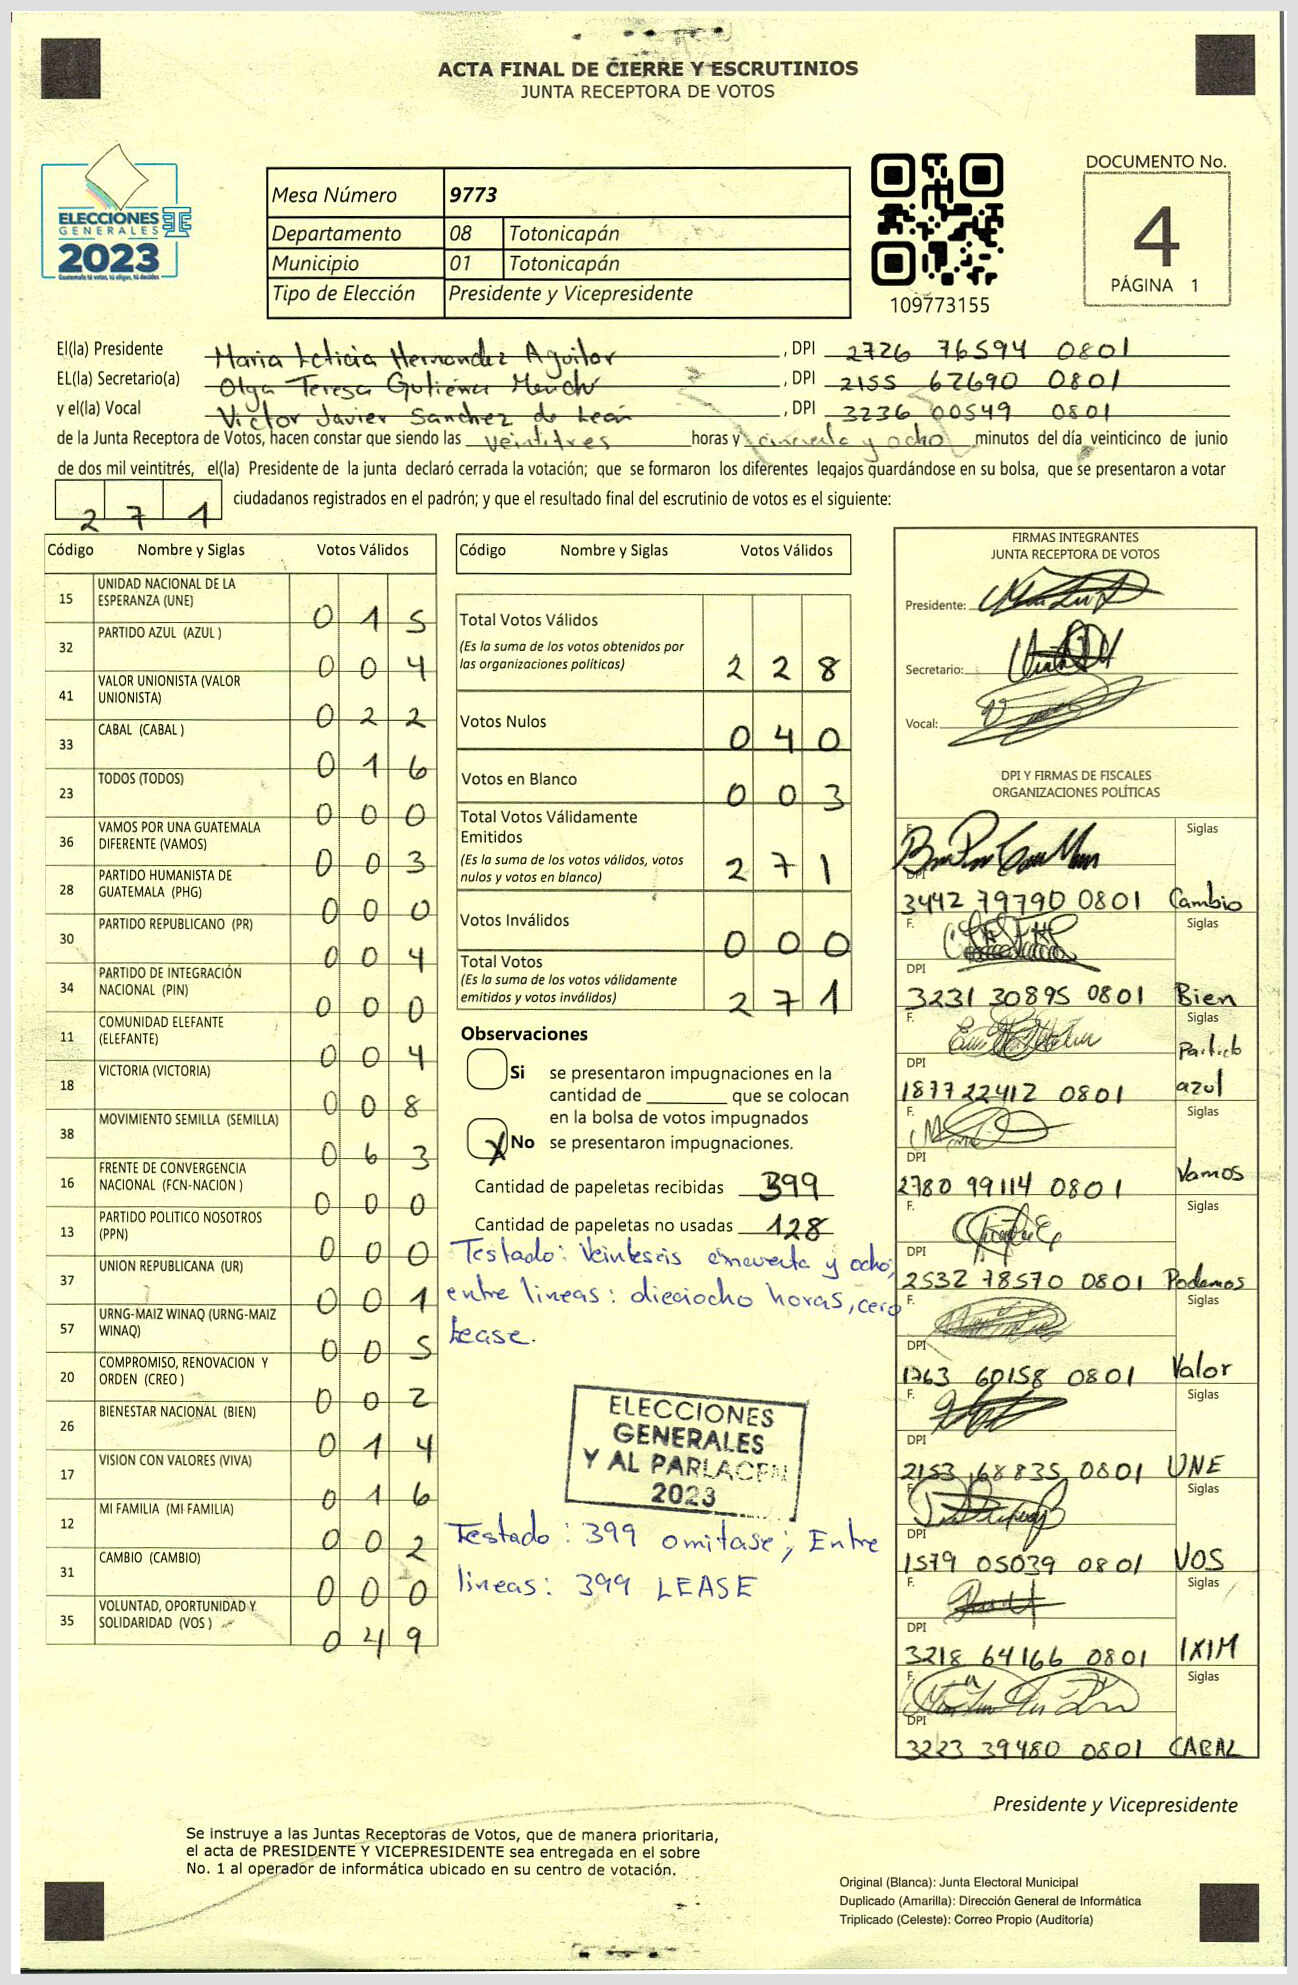 ACTA FINAL DE CIERRE Y ESCRUTINIOS
JUNTA RECEPTORA DE VOTOS
ELECCIONES
GENERALES
2023
Guatemala tú votas, tú eliges, tú decides
Mesa Número 9773
Departamento 08 Totonicapán
Municipio 01 Totonicapán
Tipo de Elección Presidente y Vicepresidente
109773155
DOCUMENTO No.
4
PÁGINA 1
El(la) Presidente Maria Leticia Hernandez Aguilar , DPI 2726 76594 0801
EL(la) Secretario(a) Olga Teresa Gutiérrez Menchú , DPI 2155 67690 0801
y el(la) Vocal Victor Javier Sanchez de León , DPI 3236 00549 0801
de la Junta Receptora de Votos, hacen constar que siendo las veintitres horas y cincuenta y ocho minutos del día veinticinco de junio
de dos mil veintitrés, el(la) Presidente de la junta declaró cerrada la votación; que se formaron los diferentes legajos guardándose en su bolsa, que se presentaron a votar
271 ciudadanos registrados en el padrón; y que el resultado final del escrutinio de votos es el siguiente:
Código Nombre y Siglas Votos Válidos
15 UNIDAD NACIONAL DE LA ESPERANZA (UNE) 015
32 PARTIDO AZUL (AZUL ) 004
41 VALOR UNIONISTA (VALOR UNIONISTA) 022
33 CABAL (CABAL ) 016
23 TODOS (TODOS) 000
36 VAMOS POR UNA GUATEMALA DIFERENTE (VAMOS) 003
28 PARTIDO HUMANISTA DE GUATEMALA (PHG) 000
30 PARTIDO REPUBLICANO (PR) 004
34 PARTIDO DE INTEGRACIÓN NACIONAL (PIN) 000
11 COMUNIDAD ELEFANTE (ELEFANTE) 004
18 VICTORIA (VICTORIA) 008
38 MOVIMIENTO SEMILLA (SEMILLA) 063
16 FRENTE DE CONVERGENCIA NACIONAL (FCN-NACION ) 000
13 PARTIDO POLITICO NOSOTROS (PPN) 000
37 UNION REPUBLICANA (UR) 001
57 URNG-MAIZ WINAQ (URNG-MAIZ WINAQ) 005
20 COMPROMISO, RENOVACION Y ORDEN (CREO ) 002
26 BIENESTAR NACIONAL (BIEN) 014
17 VISION CON VALORES (VIVA) 016
12 MI FAMILIA (MI FAMILIA) 002
31 CAMBIO (CAMBIO) 000
35 VOLUNTAD, OPORTUNIDAD Y SOLIDARIDAD (VOS ) 049
Código Nombre y Siglas Votos Válidos
Total Votos Válidos 228
(Es la suma de los votos obtenidos por
las organizaciones políticas)
Votos Nulos 040
Votos en Blanco 003
Total Votos Válidamente
Emitidos 271
(Es la suma de los votos válidos, votos
nulos y votos en blanco)
Votos Inválidos 000
Total Votos 271
(Es la suma de los votos válidamente
emitidos y votos inválidos)
Observaciones
Si se presentaron impugnaciones en la
cantidad de ________ que se colocan
en la bolsa de votos impugnados
X No se presentaron impugnaciones.
Cantidad de papeletas recibidas 399
Cantidad de papeletas no usadas 128
Testado: Veinteseis cincuenta y ocho;
entre lineas: dieciocho horas, cero
Lease.
ELECCIONES
GENERALES
Y AL PARLACEN
2023
Testado: 399 omitase; Entre
lineas: 399 LEASE
FIRMAS INTEGRANTES
JUNTA RECEPTORA DE VOTOS
Presidente:
Secretario:
Vocal:
DPI Y FIRMAS DE FISCALES
ORGANIZACIONES POLÍTICAS
F. Siglas
DPI 3442 79790 0801 Cambio
F. Siglas
DPI 3231 30895 0801 Bien
F. Siglas
DPI 1877 22412 0801 Partido azul
F. Siglas
DPI 2780 99114 0801 Vamos
F. Siglas
DPI 2532 78570 0801 Podemos
F. Siglas
DPI 1763 60158 0801 Valor
F. Siglas
DPI 2153 68835 0801 UNE
F. Siglas
DPI 1579 05039 0801 VOS
F. Siglas
DPI 3218 64166 0801 IXIM
F. Siglas
DPI 3223 39480 0801 CABAL
Presidente y Vicepresidente
Se instruye a las Juntas Receptoras de Votos, que de manera prioritaria,
el acta de PRESIDENTE Y VICEPRESIDENTE sea entregada en el sobre
No. 1 al operador de informática ubicado en su centro de votación.
Original (Blanca): Junta Electoral Municipal
Duplicado (Amarilla): Dirección General de Informática
Triplicado (Celeste): Correo Propio (Auditoría)